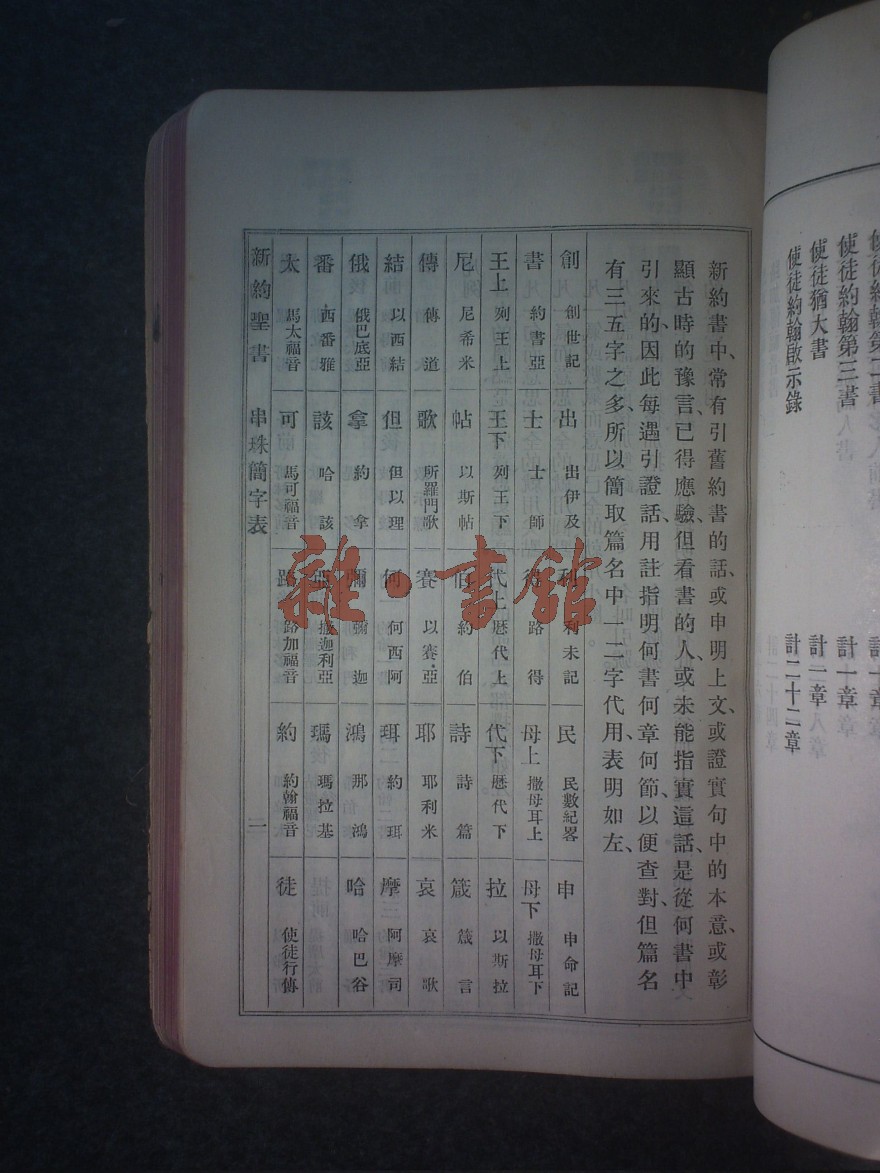 使徒約翰第三書　計一章
使徒猶大書　計一章
使徒約翰啟示錄　計二十二章
新約書中、常有引舊約書的話、或申明上文、或證實句中的本意、或彰
顯古時的豫言、已得應驗、但看書的人、或未能指實這話、是從何書中
引來的、因此每遇引證話、用註指明何書何章何節、以便查對、但篇名
有三五字之多、所以簡取篇名中一二字代用、表明如左、
創　創世記　出　出伊及　利　利未記　民　民數紀畧　申　申命記
書　約書亞　士　士師　得　路得　母上　撒母耳上　母下　撒母耳下
王上　列王上　王下　列王下　代上　歷代上　代下　歷代下　拉　以斯拉
尼　尼希米　帖　以斯帖　伯　約伯　詩　詩篇　箴　箴言
傳　傳道　歌　所羅門歌　賽　以賽亞　耶　耶利米　哀　哀歌
結　以西結　但　但以理　何　何西阿　珥　約珥　摩　阿摩司
俄　俄巴底亞　拿　約拿　彌　彌迦　鴻　那鴻　哈　哈巴谷
番　西番雅　該　哈該　亞　撒迦利亞　瑪　瑪拉基
太　馬太福音　可　馬可福音　路　路加福音　約　約翰福音　徒　使徒行傳
新約聖書　串珠簡字表　一
雜·書館